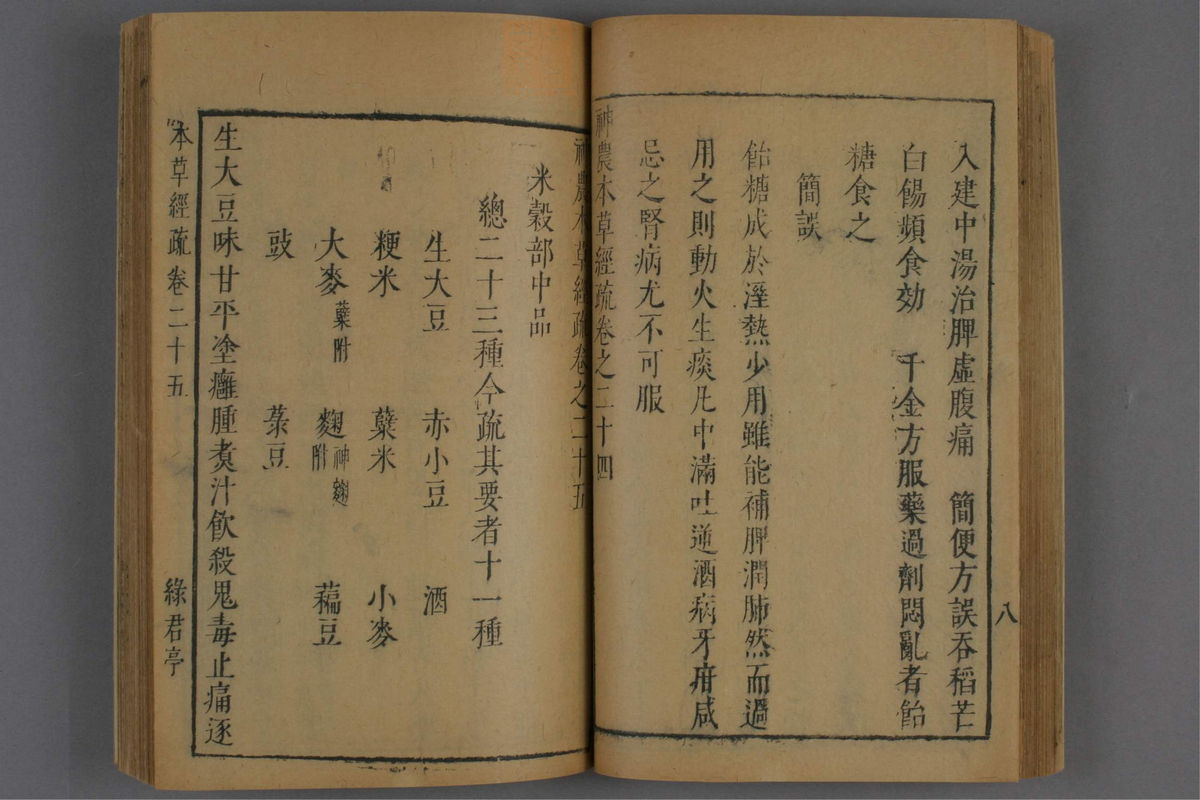 入建中湯治脾虛腹痛　簡便方誤吞稻芒
白餳頻食効　千金方服藥過劑悶亂者飴
糖食之
簡誤
飴糖成於溼熱少用雖能補脾潤肺然而過
用之則動火生痰凡中滿吐逆酒病牙疳咸
忌之腎病尤不可服
神農本草經疏卷之二十四
八
神農本草經疏卷之二十五
米穀部中品
總二十三種今疏其要者十一種
生大豆　赤小豆　酒
粳米　糵米　小麥
大麥糵附　麴神麴附　藊豆
豉　菉豆
生大豆味甘平塗癰腫煑汁飲殺鬼毒止痛逐
本草經疏　卷二十五　綠君亭